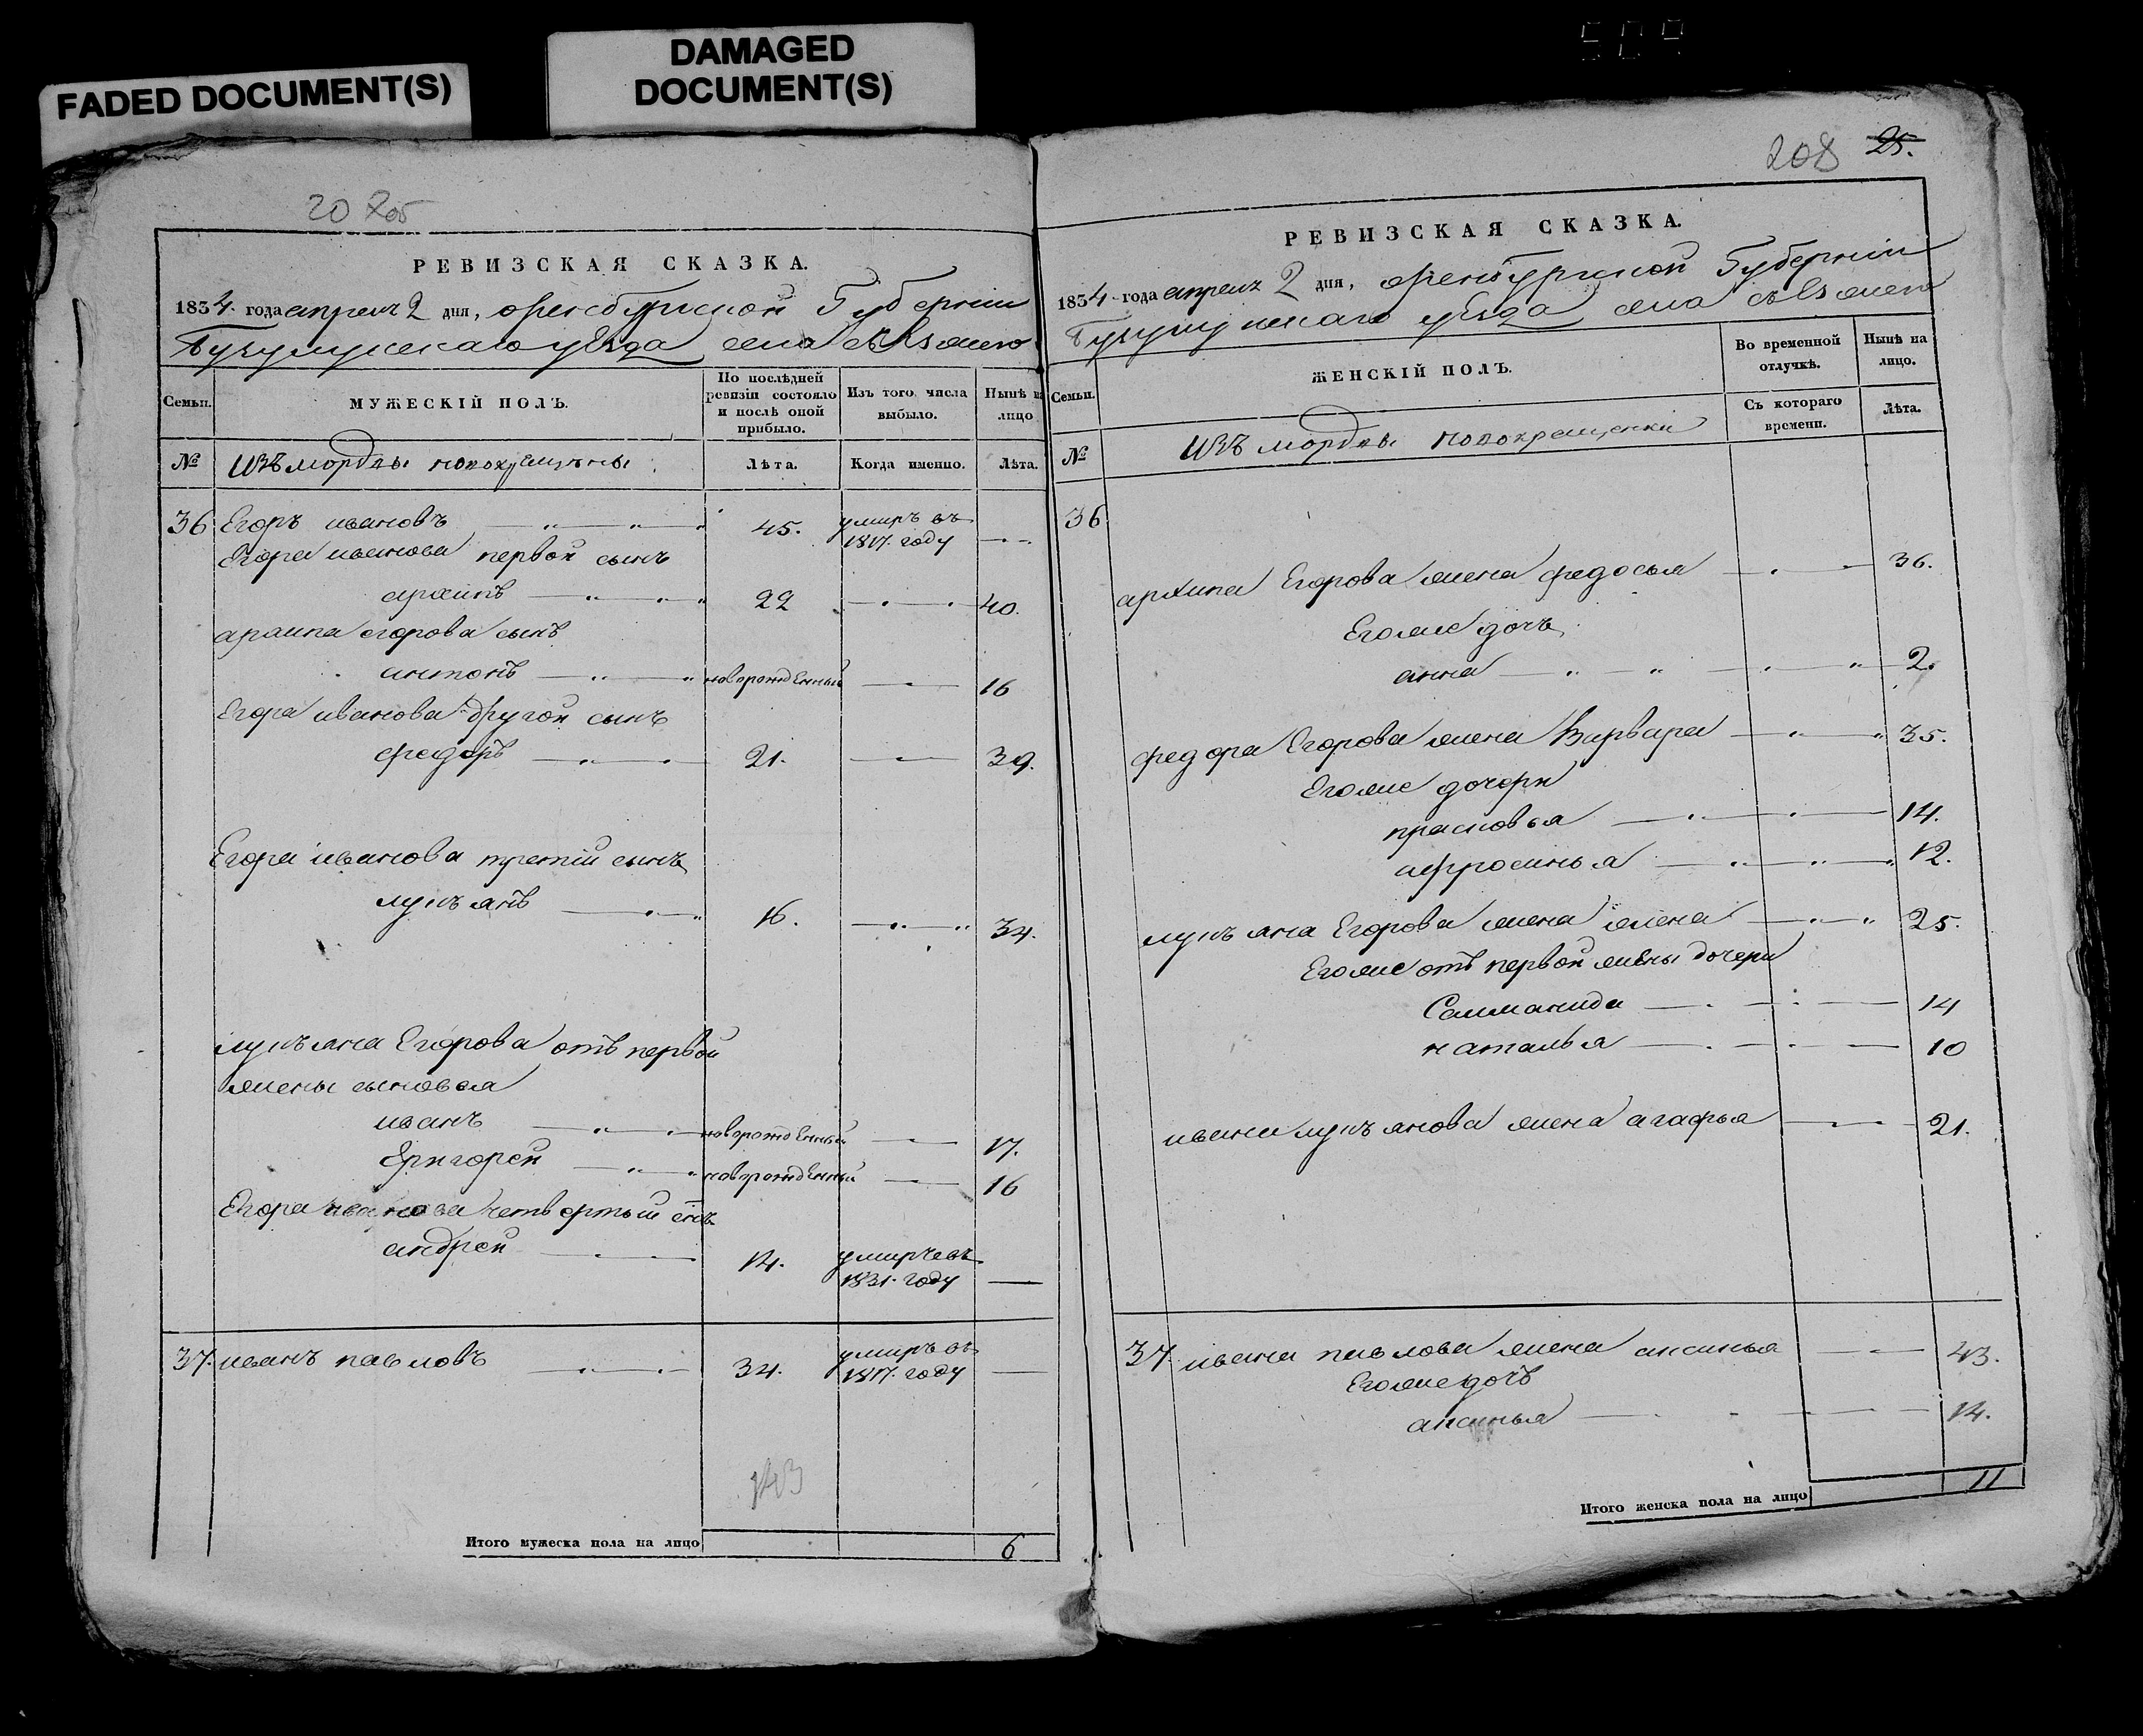 FADED DOCUMENT(S)
DAMAGED
DOCUMENT(S)
509
20 205
РЕВИЗСКАЯ СКАЗКА.
1834. года апреля 2 дня, оренбургской Губернии
Бугульминскаго уезда села
Семьи.
МУЖЕСКІЙ ПОЛЪ.
По послѣдней ревизіи состояло и послѣ оной прибыло.
Изъ того числа выбыло.
Нынѣ на лицо
№
изъ мордвы новокрещены
Лѣта.
Когда именно.
Лѣта.
36 Егоръ ивановъ 45. умиръ въ 1817. году
Егора иванова первой сынъ
архипъ 22 40.
архипа егорова сынъ
антонъ новорожденный 16
Егора иванова другой сынъ
федоръ 21. 39.
Егора иванова третій сынъ
лукъянъ 16. 34.
лукъяна Егорова отъ первой
жены сыновья
иванъ новорожденный 17.
Григорей новорожденный 16
Егора иванова четвертый снъ
андрей 14. умиръ въ 1831. году
37. иванъ павловъ 34. умиръ въ 1817. году
143
Итого мужеска пола на лицо 6
208 25.
РЕВИЗСКАЯ СКАЗКА.
1834 года апреля 2 дня, оренбургской Губернии
уезда села
Семьи.
ЖЕНСКІЙ ПОЛЪ.
Во временной отлучкѣ.
Нынѣ на лицо.
Съ котораго времени.
Лѣта.
№
изъ мордвы новокрещенки
36
архипа Егорова жена федосья 36.
Егожъ дочь
анна 2.
федора Егорова жена Варвара 35.
Егоже дочери
прасковья 14.
афросинья 12.
лукъяна Егорова жена елена 25.
Егоже отъ первой жены дочери
Саломанида 14
наталья 10
ивана лукъянова жена агафья 21.
37. ивана павлова жена аксинья 43.
Егоже дочь
аксинья 14.
Итого женска пола на лицо 11